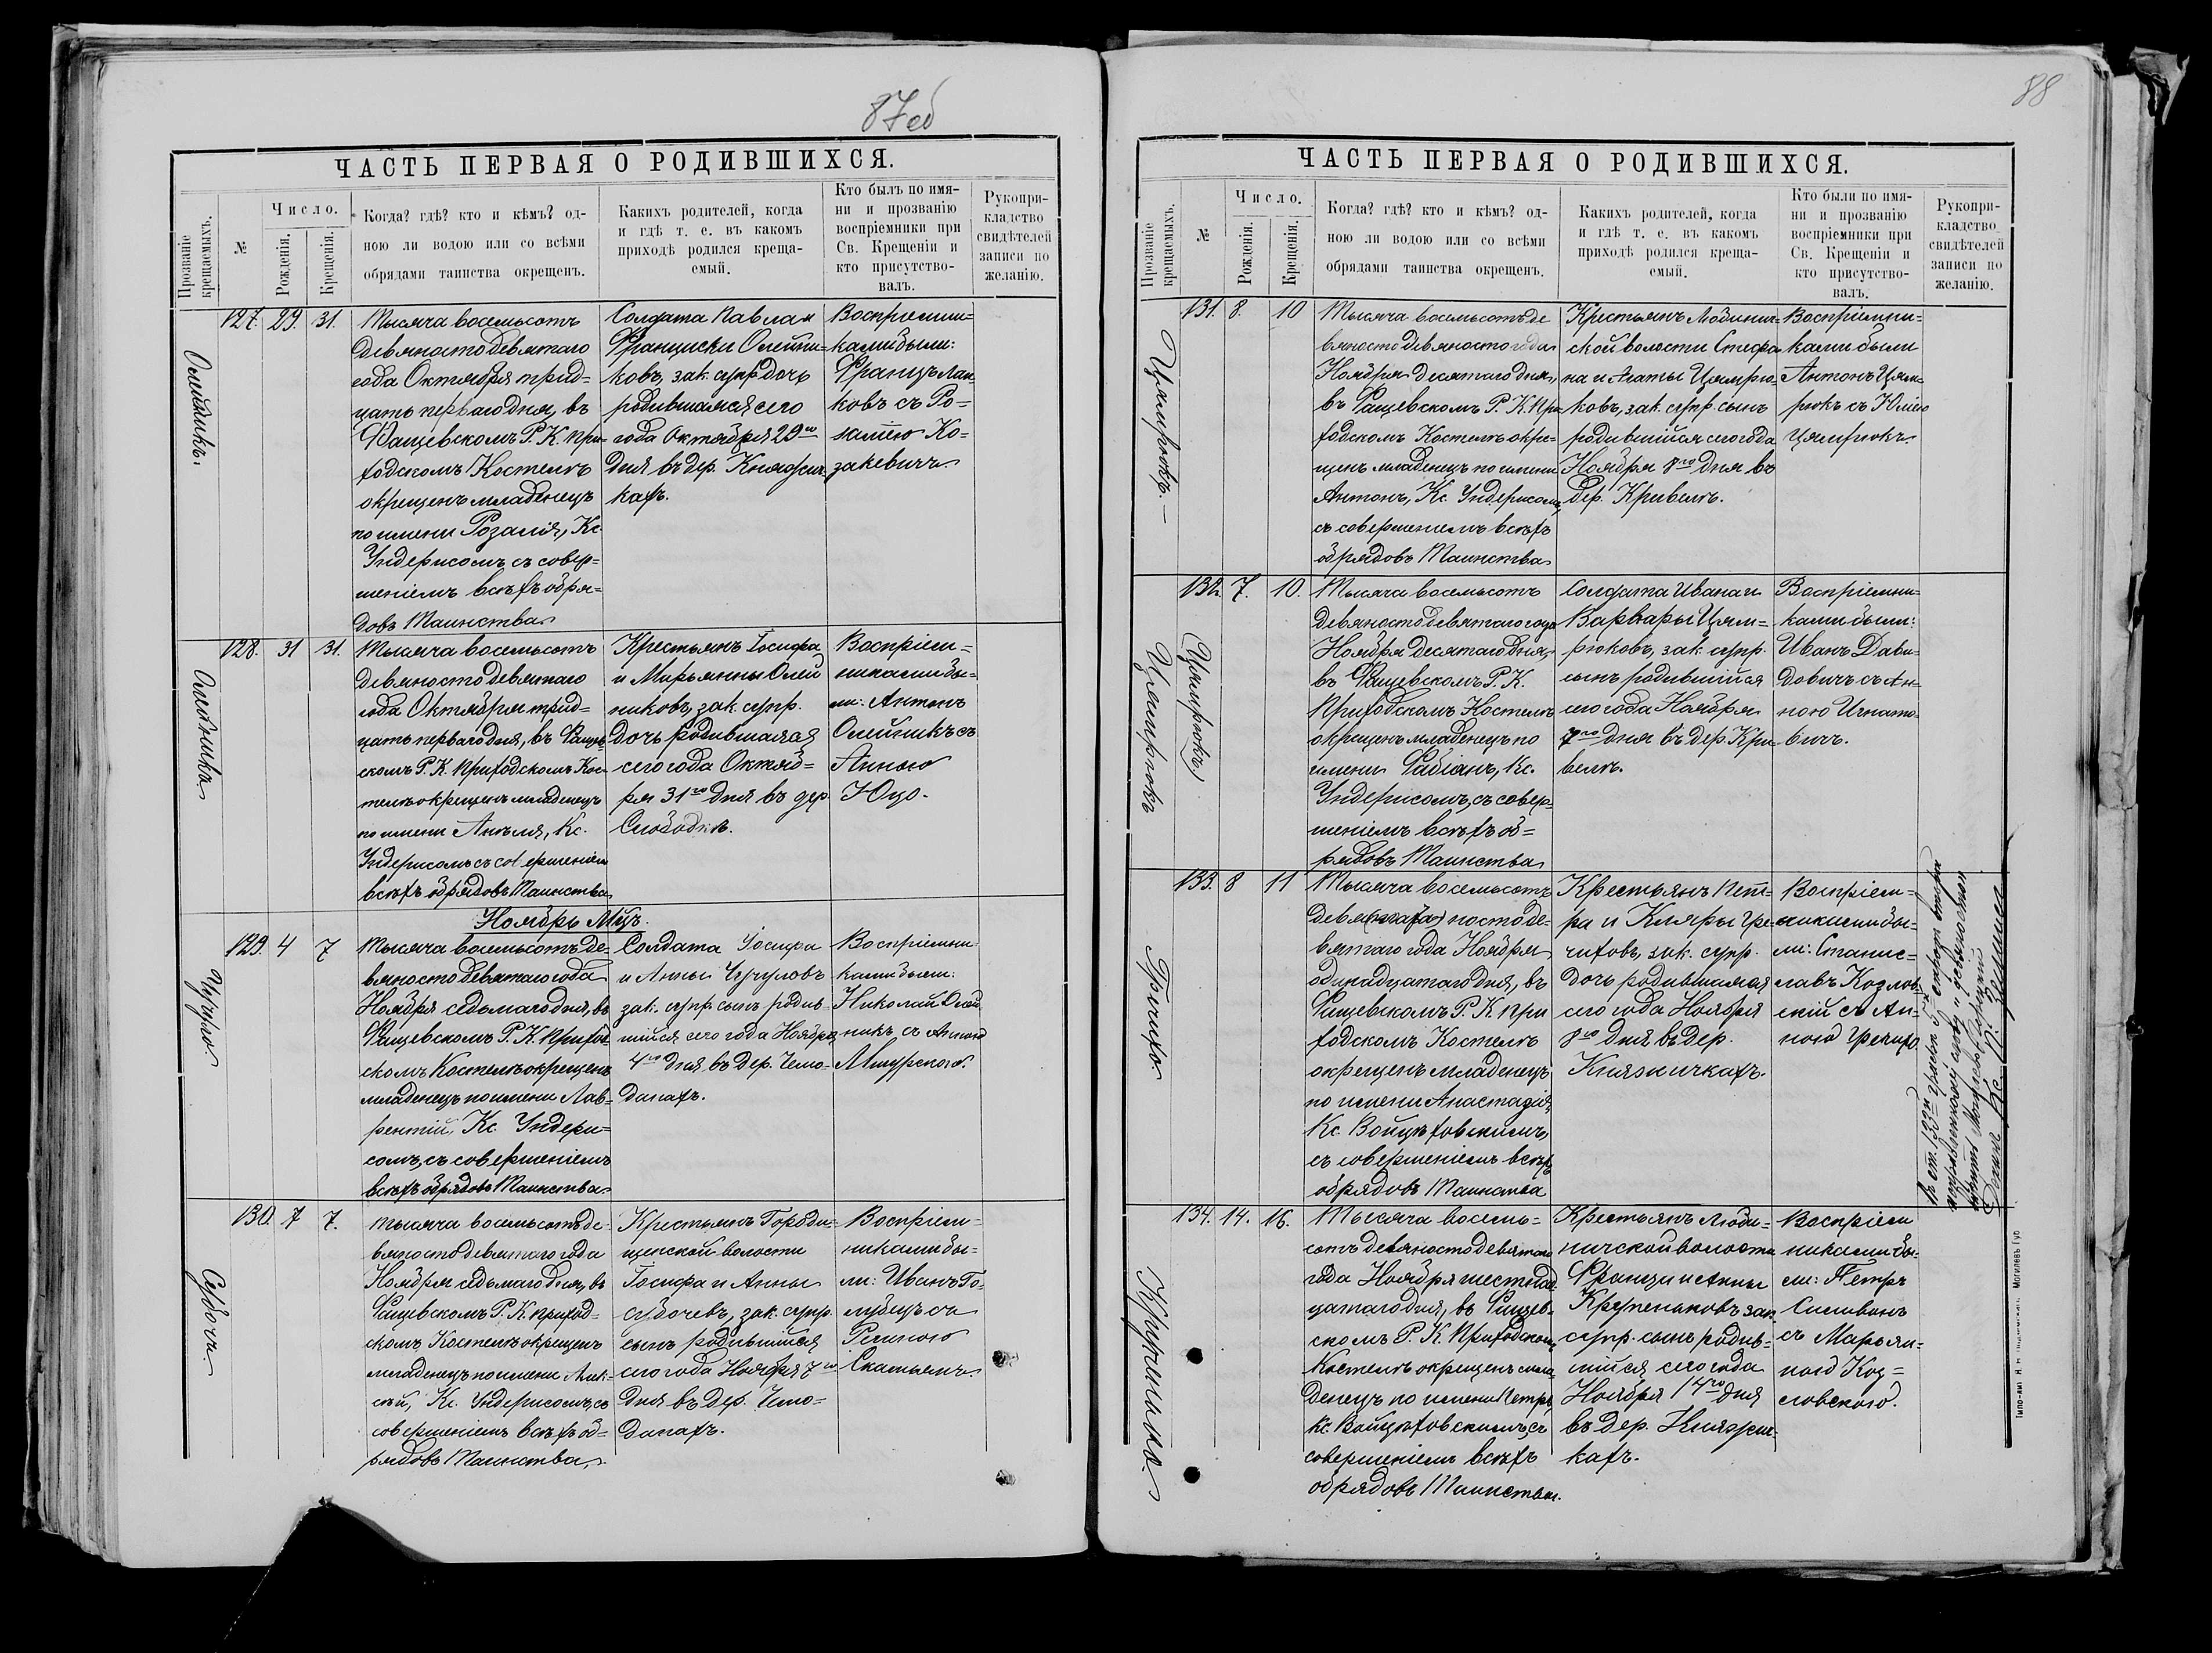 87об
ЧАСТЬ ПЕРВАЯ О РОДИВШИХСЯ.
Прозваніе крещаемыхъ.
№
Число.
Рожденія.
Крещенія.
Когда? гдѣ? кто и кѣмъ? од-
ною ли водою или со всѣми
обрядами таинства окрещенъ.
Какихъ родителей, когда
и гдѣ т. е. въ какомъ
приходѣ родился креща-
емый.
Кто былъ по имя-
ни и прозванію
воспріемники при
Св. Крещеніи и
кто присутство-
валъ.
Рукопри-
кладство
свидѣтелей
записи по
желанію.
127. 29. 31.
Тысяча восемьсотъ
девяносто девятаго
года Октября трид-
цать перваго дня, въ
Фащевскомъ Р. К. При-
ходскомъ Костелѣ
окрещенъ младенецъ
по имени Розалія, Кс.
Ундерисомъ съ совер-
шеніемъ всѣхъ обря-
довъ Таинства
Солдата Павла и
Франциски Олейни-
ковъ, зак. супр. дочь
родившаяся сего
года Октября 29го
дня въ дер. Княжи-
кахъ.
Воспріемни-
ками были:
Францъ Лап-
ковъ съ Ро-
заліею Ко-
закевичъ
Олейникъ.
128. 31 31.
Тысяча восемьсотъ
девяносто девятаго
года Октября трид-
цать перваго дня, въ Фащев-
скомъ Р. К. Приходскомъ Кос-
телѣ окрещенъ младенецъ
по имени Анеля, Кс.
Ундерисомъ съ совершеніемъ
всѣхъ обрядовъ Таинства
Крестьянъ Іосифа
и Марьянны Олей
никовъ, зак. супр.
дочь родившаяся
сего года Октяб-
ря 31го дня въ дер.
Слободкѣ.
Воспріем-
никами бы-
ли: Антонъ
Олейникъ съ
Анною
Юцо.
Олейникъ
Ноябрь Мцъ.
129. 4 7
Тысяча восемьсотъ де-
вяносто девятаго года
Ноября седьмаго дня, въ
Фащевскомъ Р. К. Приход-
скомъ Костелѣ окрещенъ
младенецъ по имени Лав-
рентій, Кс. Ундери-
сомъ, съ совершеніемъ
всѣхъ обрядовъ Таинства
Солдата Іосифа
и Анны
зак. супр. сынъ родив-
шійся сего года Ноября
4го дня, въ дер. Чемо-
данахъ.
Воспріемни
ками были:
Николай Олей
никъ съ Анною
130. 7 7.
Тысяча восемьсотъ де-
вяносто девятаго года
Ноября седьмаго дня, въ
Фащевскомъ Р. К. Приход-
скомъ Костелѣ окрещенъ
младенецъ по имени Алек-
сѣй, Кс. Ундерисомъ, съ
совершеніемъ всѣхъ об-
рядовъ Таинства
Крестьянъ Городи-
щенской волости
Іосифа и Анны
Субочевъ, зак. супр.
сынъ родившійся
сего года Ноября 7го
дня въ дер. Чемо-
данахъ.
Воспріем-
никами бы-
ли: Иванъ Го-
лубецъ съ
Региною
Субочъ.
88
ЧАСТЬ ПЕРВАЯ О РОДИВШИХСЯ.
Прозваніе крещаемыхъ.
№
Число.
Рожденія.
Крещенія.
Когда? гдѣ? кто и кѣмъ? од-
ною ли водою или со всѣми
обрядами таинства окрещенъ.
Какихъ родителей, когда
и гдѣ т. е. въ какомъ
приходѣ родился креща-
емый.
Кто были по имя-
ни и прозванію
воспріемники при
Св. Крещеніи и
кто присутство-
валъ.
Рукопри-
кладство
свидѣтелей
записи по
желанію.
131. 8. 10
Тысяча восемьсотъ де
вяносто девяностогода
Ноября десятаго дня,
въ Фащевскомъ Р. К. При-
ходскомъ Костелѣ окре-
щенъ младенецъ по имени
Антонъ, Кс. Ундерисомъ,
съ совершеніемъ всѣхъ
обрядовъ Таинства
Крестьянъ Любинич-
ской волости Стефа
на и Агаты Цямрю-
ковъ, зак. супр. сынъ
родившійся сего года
Ноября 8го дня въ
дер. Кривелѣ.
Воспріемни-
ками были
Антонъ Цям-
рюкъ съ Юліею
Цямрюкъ.
Цямрюкъ.
132. 7. 10.
Тысяча восемьсотъ
девяносто девятаго года
Ноября десятаго дня,
въ Фащевскомъ Р. К.
Приходскомъ Костелѣ
окрещенъ младенецъ по
имени Фабіанъ, Кс.
Ундерисомъ, съ совер-
шеніемъ всѣхъ об-
рядовъ Таинства
Солдата Ивана и
Варвары Цям-
рюковъ, зак. супр.
сынъ родившійся
сего года Ноября
7го дня въ дер. Кри-
велѣ.
Воспріемни-
ками были:
Иванъ Дави-
довичъ съ Ан-
ною Игнато-
вичъ.
(Цямрюкъ)
Цямрюкъ
133. 8 11
Тысяча восемьсотъ
девя(ягаја)носто де-
вятаго года Ноября
одинадцатаго дня, въ
Фащевскомъ Р. К. При
ходскомъ Костелѣ
окрещенъ младенецъ
по имени Анастазія,
Кс. Войцѣховскимъ,
съ совершеніемъ всѣхъ
обрядовъ Таинства
Крестьянъ Пет-
ра и Кляры Гре-
чиховъ, зак. супр.
дочь родившаяся
сего года Ноября
8го дня въ дер.
Княжичкахъ.
Воспріем-
никами бы-
ли: Станис-
лавъ Козлов-
скій съ Ан-
ною Гречихо
Гречихо
134. 14. 16.
Тысяча восемь-
сотъ девяносто девятаго
года Ноября шестнад-
цатаго дня, въ Фащев-
скомъ Р. К. Приходскомъ
Костелѣ окрещенъ мла
денецъ по имени Петръ,
Кс. Войцѣховскимъ, съ
совершеніемъ всѣхъ
обрядовъ Таинства.
Крестьянъ Люби-
ничской волости
Франца и Анны
Крупеньковъ зак.
супр. сынъ родив-
шійся сего года
Ноября 14го дня
въ дер. Княжи-
кахъ.
Воспріем
никами бы-
ли: Петръ
Силивонъ
съ Марьян-
ною Коз-
ловскою.